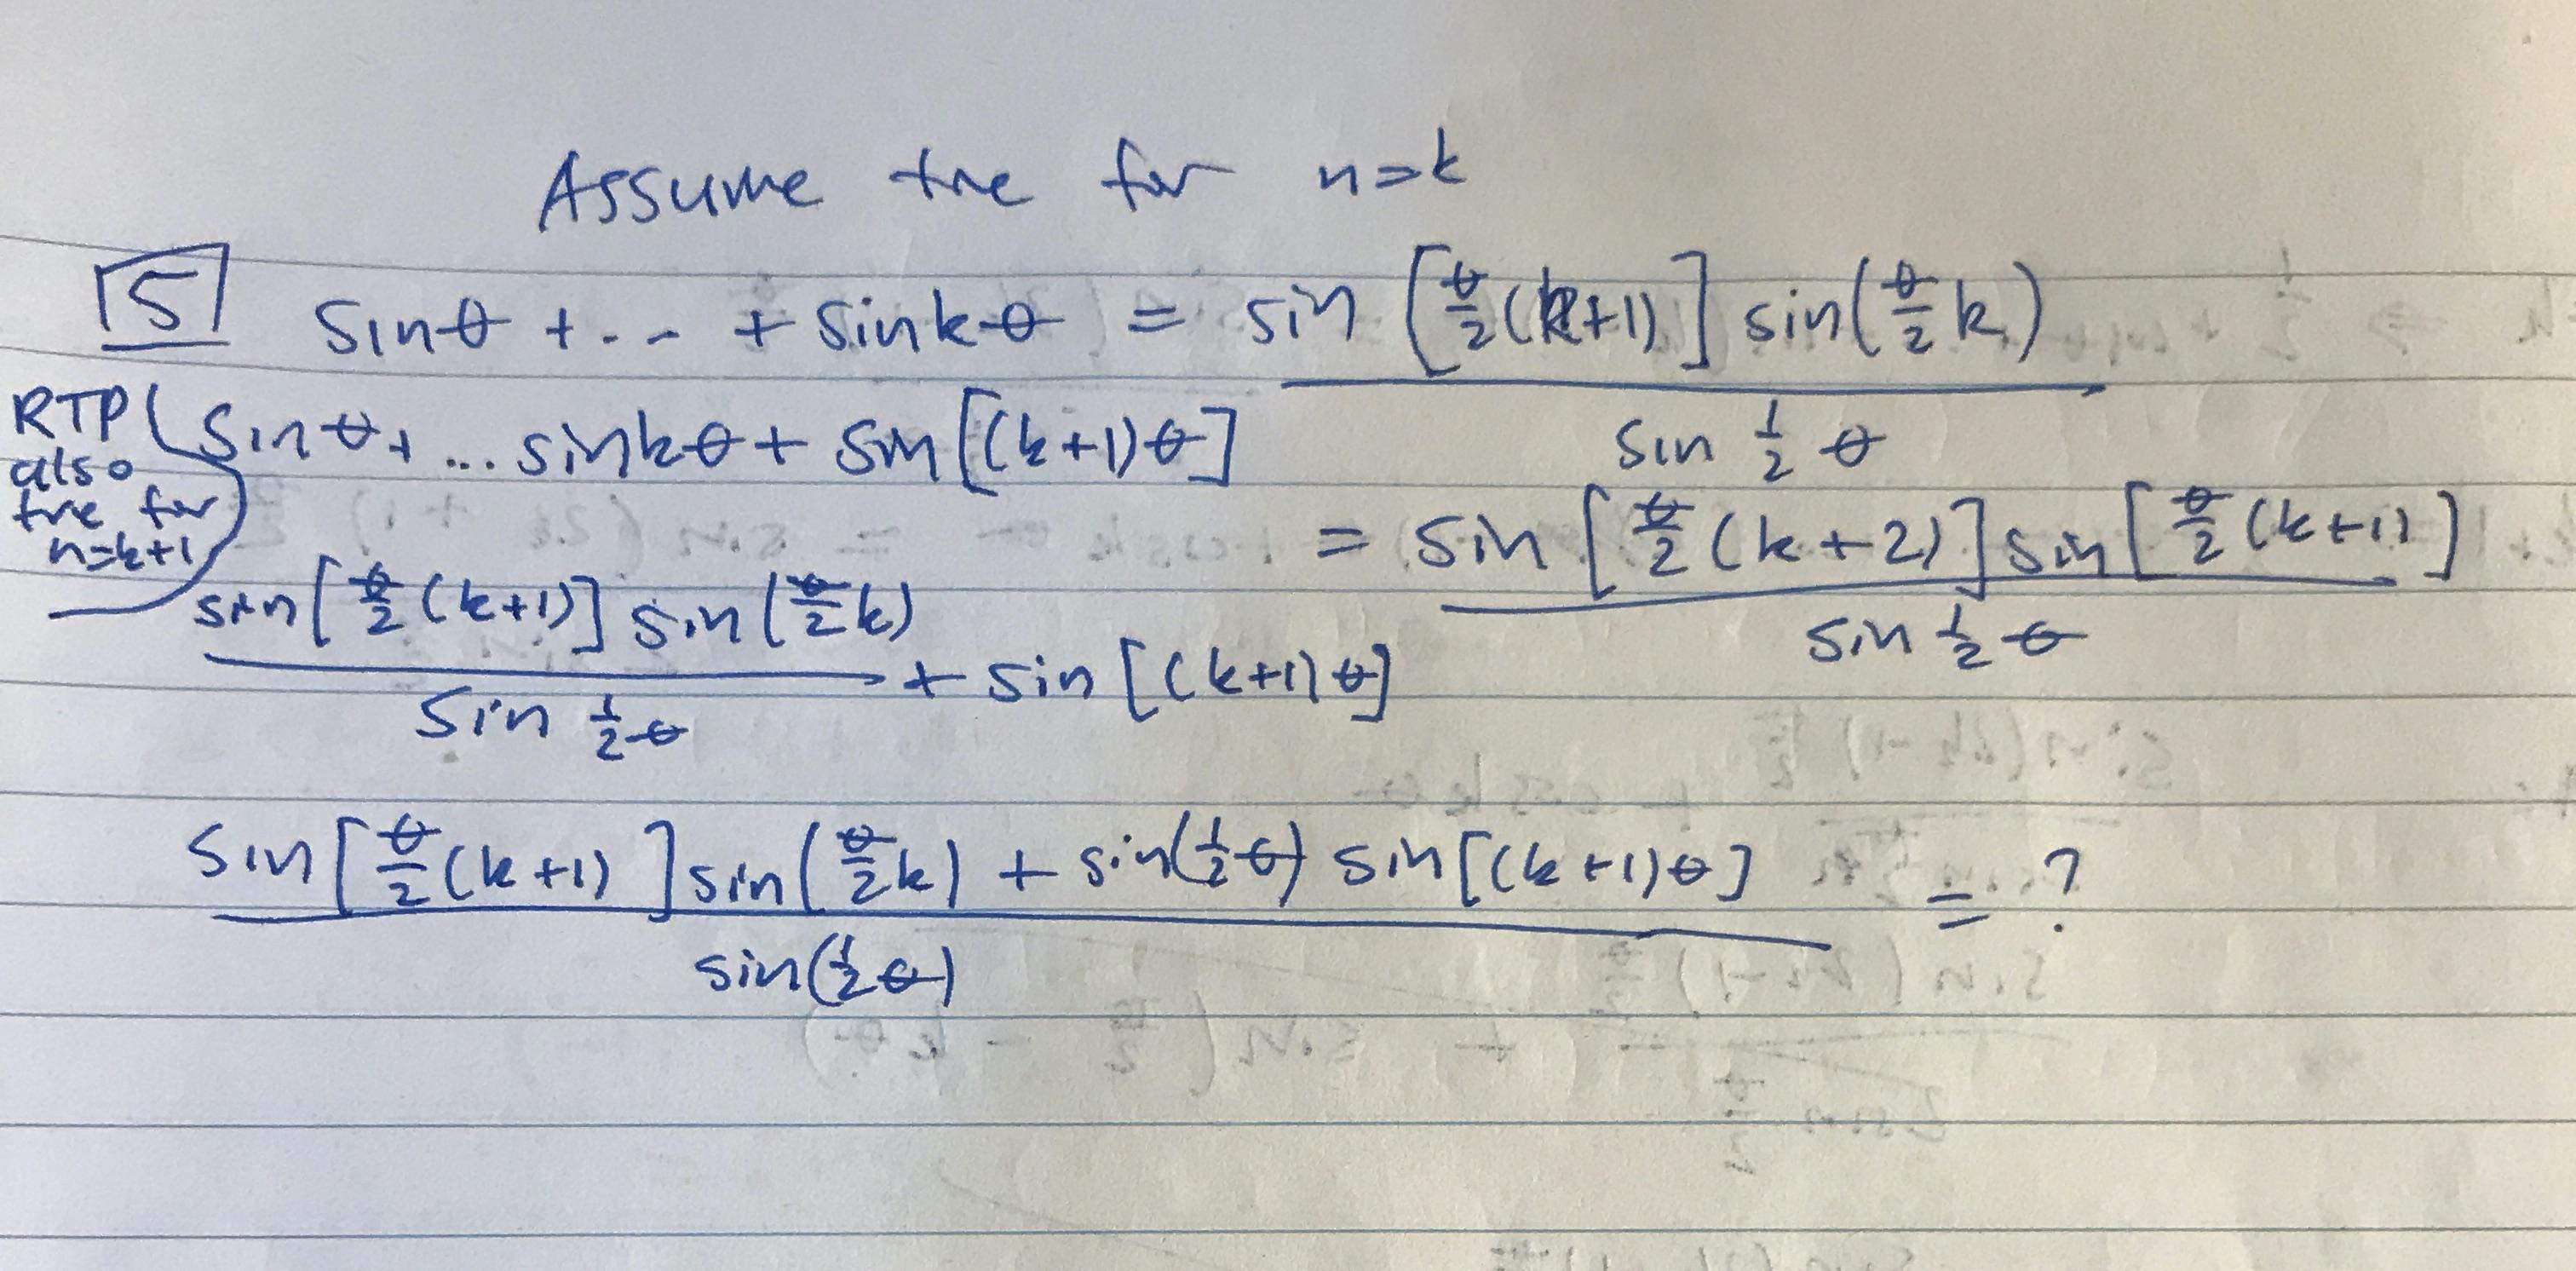 Assume true for n=k
5 sinθ + ... + sinkθ = sin [θ/2(k+1)] sin(θ/2 k) / sin 1/2 θ
RTP also true for n=k+1
sinθ+ ... sinkθ + sin[(k+1)θ]
= sin [θ/2 (k+2)] sin [θ/2 (k+1)] / sin 1/2 θ
sin[θ/2 (k+1)] sin(θ/2 k) / sin 1/2 θ + sin [(k+1)θ]
sin[θ/2(k+1)] sin(θ/2 k) + sin(1/2 θ) sin[(k+1)θ] / sin(1/2 θ) = ?